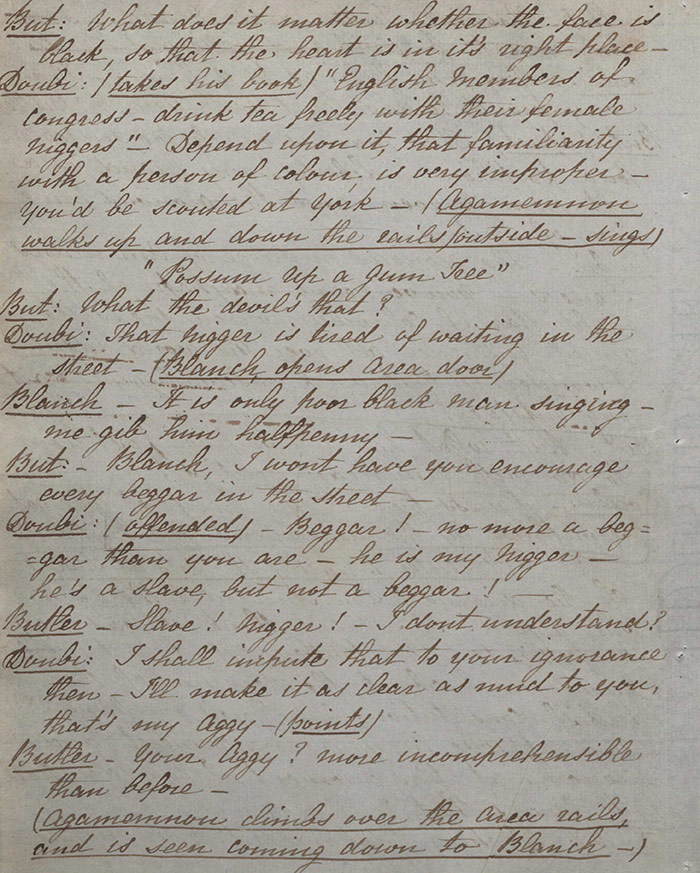 But: What does it matter whether the face is
black, so that the heart is in it's right place –
Doubi: (takes his book) "English Members of
Congress – drink tea freely with their female
niggers" – Depend upon it, that familiarity
with a person of colour is very improper –
you'd be scouted at York – (Agamemnon
walks up and down the rails outside – sings)
"Possum up a Gum Tree"
But: What the devil's that?
Doubi: That nigger is tired of waiting in the
street – (Blanch opens area door)
Blanch – It is only poor black man singing –
me gib him halfpenny –
But: – Blanch, I wont have you encourage
every beggar in the street –
Doubi: (offended) – Beggar! – no more a beg=
=gar than you are – he is my nigger –
he's a slave, but not a beggar! –
Butler – Slave! nigger! – I dont understand?
Doubi: I shall impute that to your ignorance
then – I'll make it as clear as mud to you,
that's my Aggy – (points)
Butler – Your Aggy? more incomprehensible
than before –
(Agamemnon climbs over the area rails,
and is seen coming down to Blanch –)